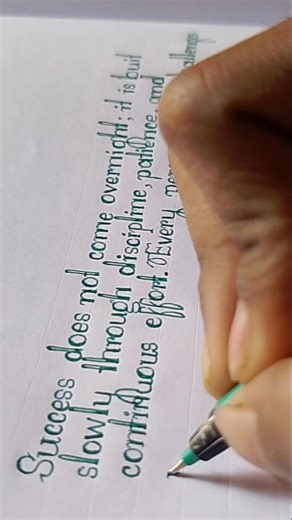 Success does not come overnight; it is built
slowly through discipline, patience, and
continuous effort. Every
challenges